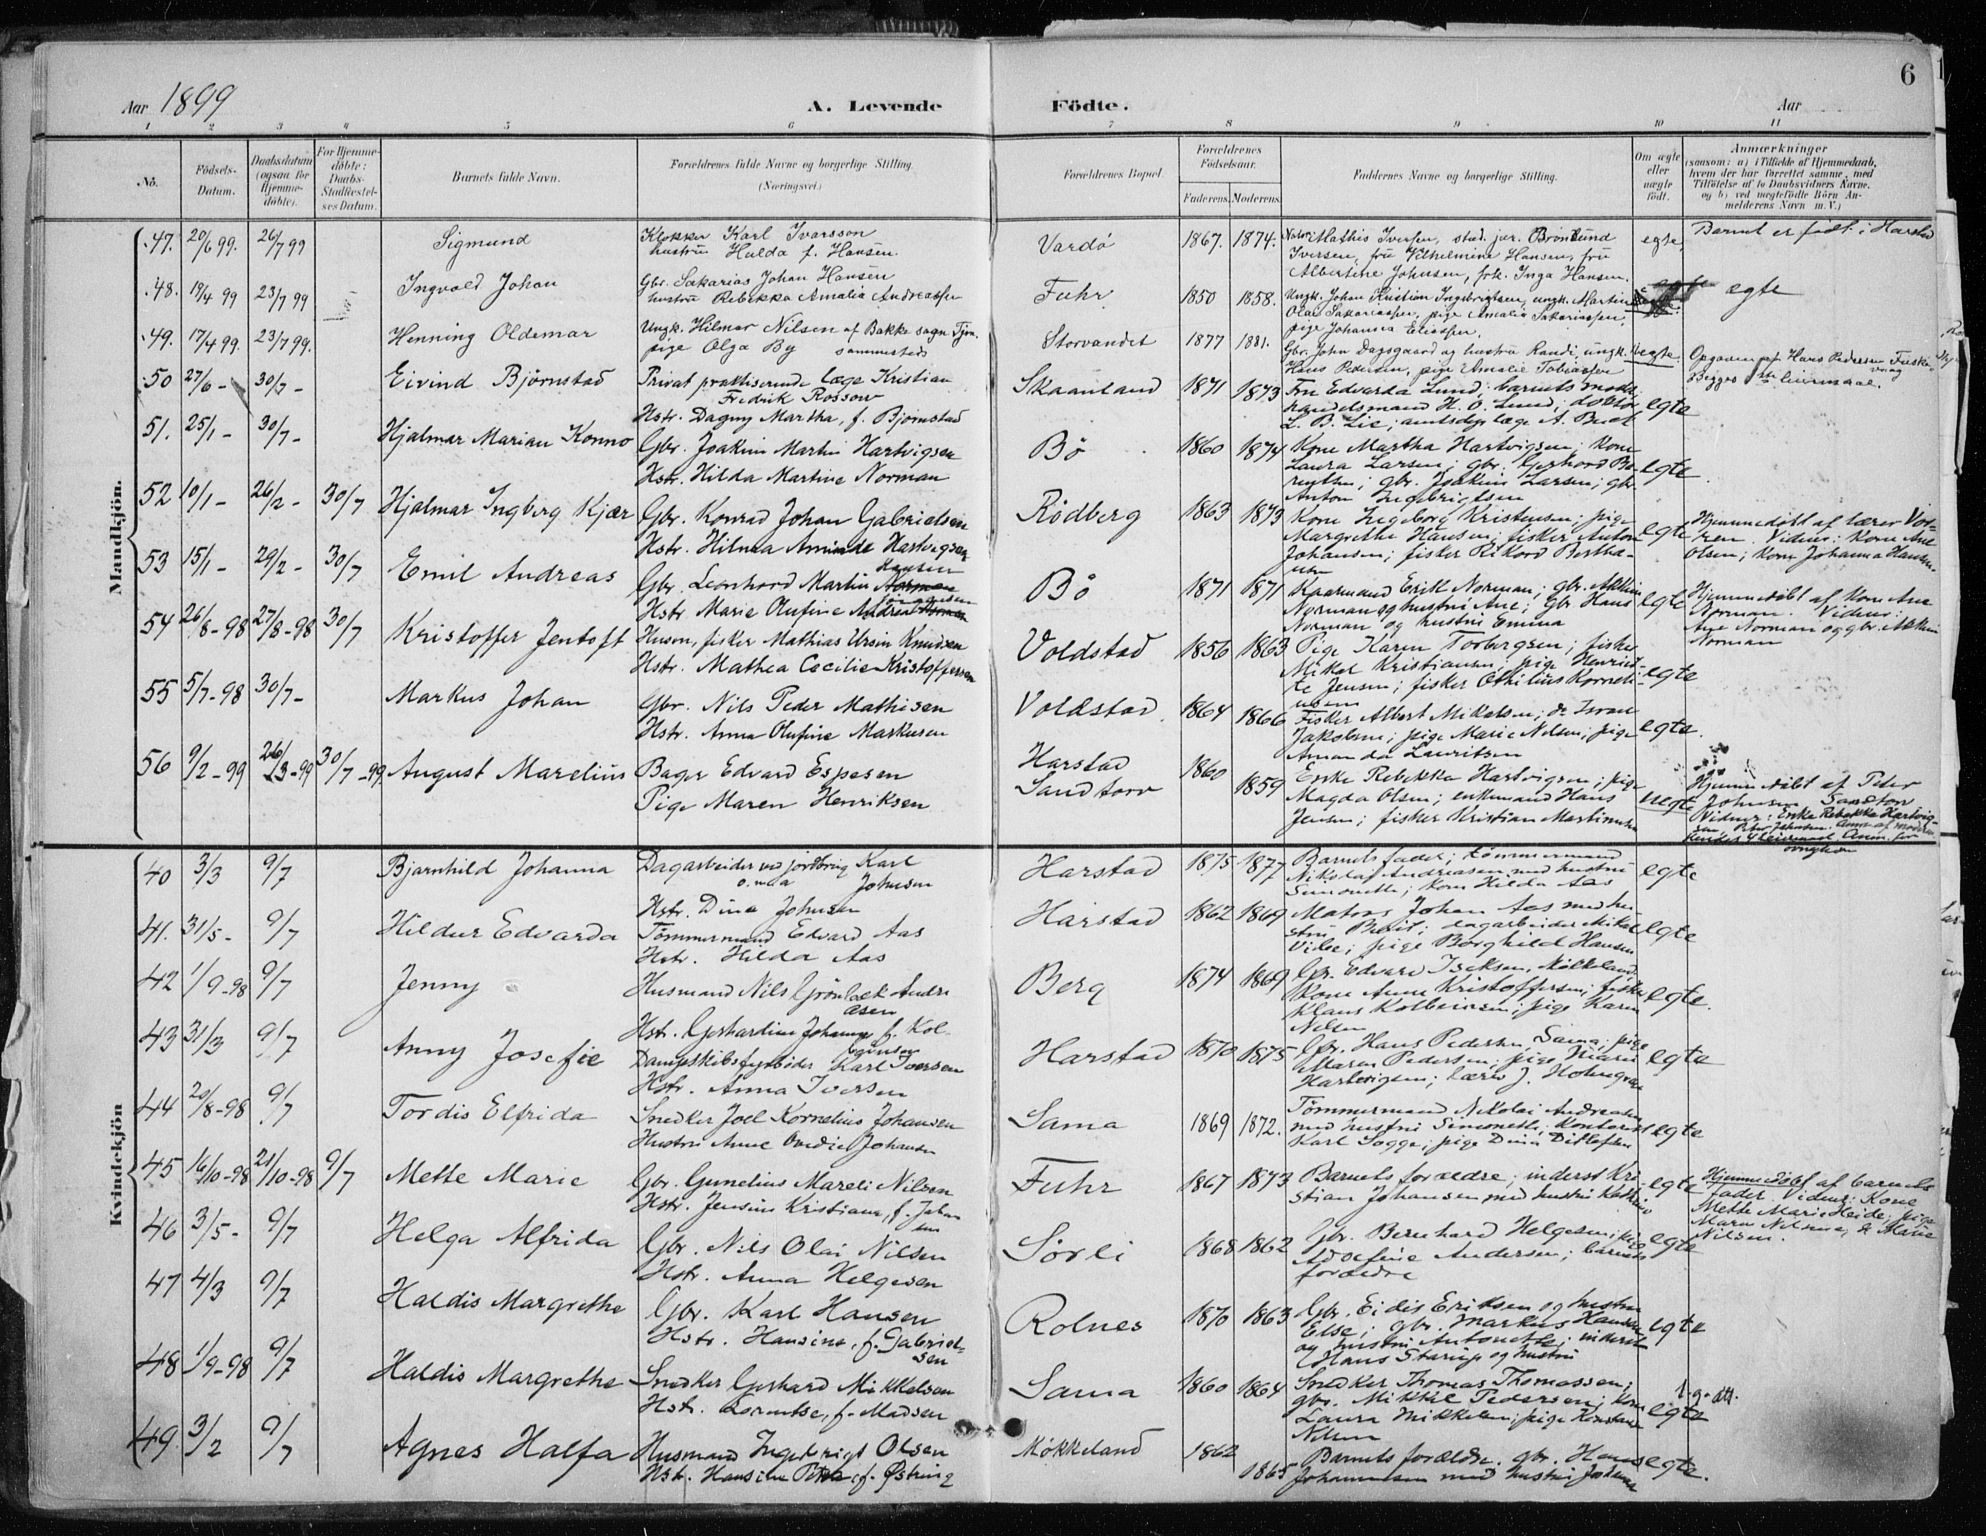 Aar 1899
A. Levende
Födte.
Aar
6
1 2 3 4 5 6 7 8 9 10 11
No.
Födsels-
Datum.
Daabsdatum
(ogsaa for
Hjemme-
döbte).
For Hjemme-
döbte:
Daabs-
Stadfæstel-
ses Datum.
Barnets fulde Navn.
Forældrenes fulde Navne og borgerlige Stilling.
(Næringsvei.)
Forældrenes Bopæl.
Forældrenes
Födselsaar.
Faderens. Moderens.
Faddernes Navne og borgerlige Stilling.
Om ægte
eller
uægte
födt.
Anmærkninger
(saasom: a) i Tilfælde af Hjemmedaab,
hvem der har forrettet samme, med
Tilföielse af to Daabsvidners Navne.
og b) ved uægtefödte Börn An-
melderens Navn m. V.)
Mandkjön.
47. 20/6 99. 26/7 99 Sigmund
Klokker Karl Ivarsson
hustru Hulda f. Hansen.
Vardø 1867. 1874.
Mathis Iversen, stud. jur.
Iversen, fru Vilhelmine Hansen, fru
Albertine Johnsen, frk. Inga Hansen.
egte,
Barnet er født i Harstad
48. 19/4 99 23/7 99 Ingvald Johan
Gbr. Sakarias Johan Hansen
hustru Rebekka Amalia Andreassen
Fuhr 1850 1858.
Ungk. Johan Kristian Ingebrigtsen, ungk. Martin
Olai Sakariassen, pige Amalia Sakariassen,
pige Johanna Eliassen.
egte
49. 17/4 99. 23/7 99. Henning Oldemar
Ungk. Hilmar Nilsen af Bakke sogn
pige Olga By sammesteds
Storvandet 1877 1881.
Gbr. John Dagsgaard og hustru Randi, ungk.
Hans Pedersen, pige Amalie Tobiassen
Opgaven af Hans Pedersen
Begges 1ste leiermaal.
50 27/6 - 30/7 - Eivind Bjørnstad
Privat praktiserende læge Kristian
Fredrik Rossow
Hstr. Dagny Martha, f. Bjørnstad
Skaanland 1871 1873
Fru Edvarda Lund; barnets moder
handelsmand H. O. Lund; doktor
L. B. Lie; amtsdyrlæge A. Buch
egte
51. 25/1 - 30/7 - Hjalmar Marian Konno
Gbr. Joakim Martin Hartvigsen
Hstr. Hilda Martine Norman
Bø 1860 1874
Kone Martha Hartvigsen; kone
Laura Larsen; gbr. Gerhard
gbr. Joakim Larsen; gbr.
Anton Ingebrigtsen
egte
52 10/1 - 26/2 - 30/7 Hjalmar Ingberg Kjær
Gbr. Konrad Johan Gabrielsen
Hstr. Hilma Aminde Hartvigsen
Rødberg 1863 1873
Kone Ingeborg Kristensen; pige
Margrethe Hansen; fisker Anton
Johansen; fisker Rikard
egte
Hjemmedøbt af lærer
Vidner: Kone Ane
Olsen; kone Johanna Hansen.
53 15/1 - 29/2 - 30/7 Emil Andreas
Hansen
Gbr. Leonhard Martin Norman
Hstr. Marie Olufine
Bø 1871 1871
Kaarmand Erik Norman; gbr.
Norman og hustru Ane; gbr Hans
Norman og hustru Emma
egte
Hjemmedøbt af kone Ane
Norman Vidner:
Ane Norman og gbr.
Norman
54 26/8-98 27/8-98 30/7 Kristoffer Jentoft
Husm, fisker Mathias Ursin Knudsen
Hstr. Mathea Cecilie Kristoffersen
Voldstad 1856 1863
Pige Karen Torbergsen; fisker
Mikal Kristiansen; pige Henriet-
te Jensen; fisker Othilius
egte
55 5/7-98 30/7- Markus Johan
Gbr. Nils Peder Mathisen
Hstr. Anna Olufine Markusen
Voldstad 1864 1866
Fisker Albert Mikalsen; do
Jakobsen; pige Marie Nilsen; pige
Amanda Lauritsen
egte.
56 9/2-99 26/3-99 30/7-99 August Marelius
Bager Edvard Espesen
Pige Maren Henriksen
Harstad
Sandtorv
1860 1859
Enke Rebekka Hartvigsen; pige
Magda Olsen; enkemand Hans
Jensen; fisker Kristian
uegte
Hjemmedøbt af Peter
Johnsen Sandtorv
Vidner: Enke Rebekka Hartvig-
sen, Peter Johnsen.
Kvindekjön
40 3/3 9/7 Bjarnhild Johanna
Dagarbeider ved jordbrug Karl
Johnsen
Hstr. Dina Johnsen
Harstad 1875 1877
Barnets fader; tømmermand
Nikolai Andreasen med hustru
Simonette; kone Hilda Aas
egte
41. 31/5- 9/7 Hildur Edvarda
Tømmermand Edvard Aas
Hstr. Hilda Aas
Harstad 1862 1869
Johan Aas med hu
stru Berit; dagarbeider
pige Borghild Hansen
egte
42 1/9-98 9/7 Jenny
Husmand Nils Grønbæk Andre
asen
Hstr. Gerhardine Johanna f. Kol-
Berg 1874 1869
Gbr. Edvard Iseksen, Møkkeland
Kone Anne Kristoffersen; fisker
Klaus Kolbeinsen; pige Karen
Nilsen
egte.
43 31/3 9/7 Anny Josefie
Dampskibsfyrbøder Karl Iversen
Hstr. Anna Iversen
Harstad 1870 1875
Gbr. Hans Pedersen, Sama, pige
Maren Pedersen; pige Marie
Hartvigsen; lærer J. Holmgren
egte
44 20/8-98 9/7 Tordis Elfrida
Snedker Joel Kornelius Johansen
Hustru Anne Ovedie Johansen
Sama 1869 1872.
Tømmermand Nikolai Andreasen
med hustru Simonette; kontorist
Karl Sogge; pige Dina Ditlefsen
egte
45 16/10-98 21/10-98 9/7 Mette Marie
Gbr. Gunelius Mareli Nilsen
Hstr. Jensine Kristiane, f. Johan
sen
Fuhr 1867 1873
Barnets forældre; inderst Kri-
stian Johansen med hustru
egte
Hjemmedøbt af barnets
fader Vidner: Kone
Mette Marie Heide; pige
Maren Nilsen, do Marie
Nilsen.
46 3/5- 9/7 Helga Alfrida
Gbr. Nils Olai Nilsen
Hstr. Anna Helgesen
Sørli 1868 1862
Gbr. Bernhard Helgesen; pige
Adolfine Andersen; barnets
forældre
egte
47 4/3 9/7 Haldis Margrethe
Gbr. Karl Hansen
Hstr. Hansine, f. Gabriel-
sen
Rolnes 1870 1863
Gbr. Eidis Eriksen og hustru
Else; gbr. Markus Hansen
og hustru Antonette; inderst
Hans Starup og hustru
egte
48 1/9-98 9/7 Haldis Margrethe
Snedker Gerhard Mikkelsen
Hstr. Lorentse, f. Madsen
Sama 1860 1864
Snedker Thomas Thomassen;
gbr. Mikkel Pedersen; kone
Laura Mikkelsen; pige
Nilsen
egte
49. 3/2 9/7 Agnes Halfa
Husmand Ingebrigt Olsen
Hstr. Hansine f. Østring
Møkkeland 1862 1865
Barnets forældre. gbr. Hans
Johannessen med hustru
egte.